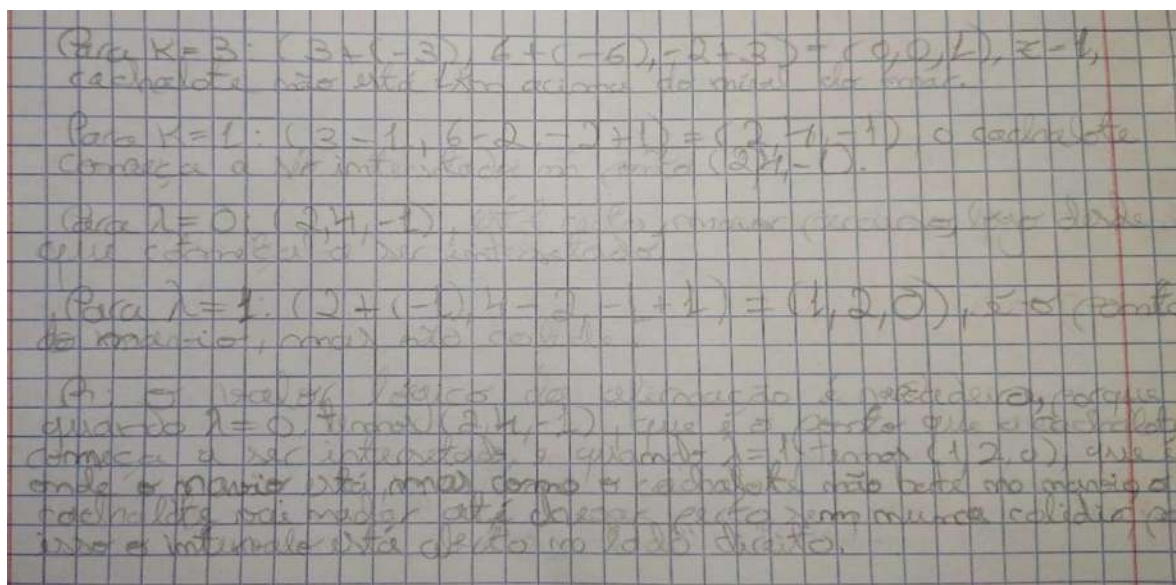 Para K=3: (3+(-3), 6+(-6), -2+3) = (0,0,1), z=1,
cachalote não está 1km acima do nível do mar.
Para K=1: (3-1, 6-2, -2+1) = (2,4,-1) o cachalote
começa a ser intersetado no ponto (2,4,-1).
Para λ=0: (2,4,-1), desde
que começa a ser intersetado
Para λ=1: (2+(-1), 4-2, -1+1) = (1,2,0), é o ponto
do navio, mas não colide.
R: O valor lógico da afirmação é verdadeiro, porque
quando λ=0 temos (2,4,-1), que é o ponto que o cachalote
começa a ser intersetado, e quando λ=1 temos (1,2,0), que é
onde o navio está, mas como o cachalote não bate no navio o
cachalote vai nadar até chegar perto sem nunca colidir, p
isso o intervalo está aberto no lado direito.